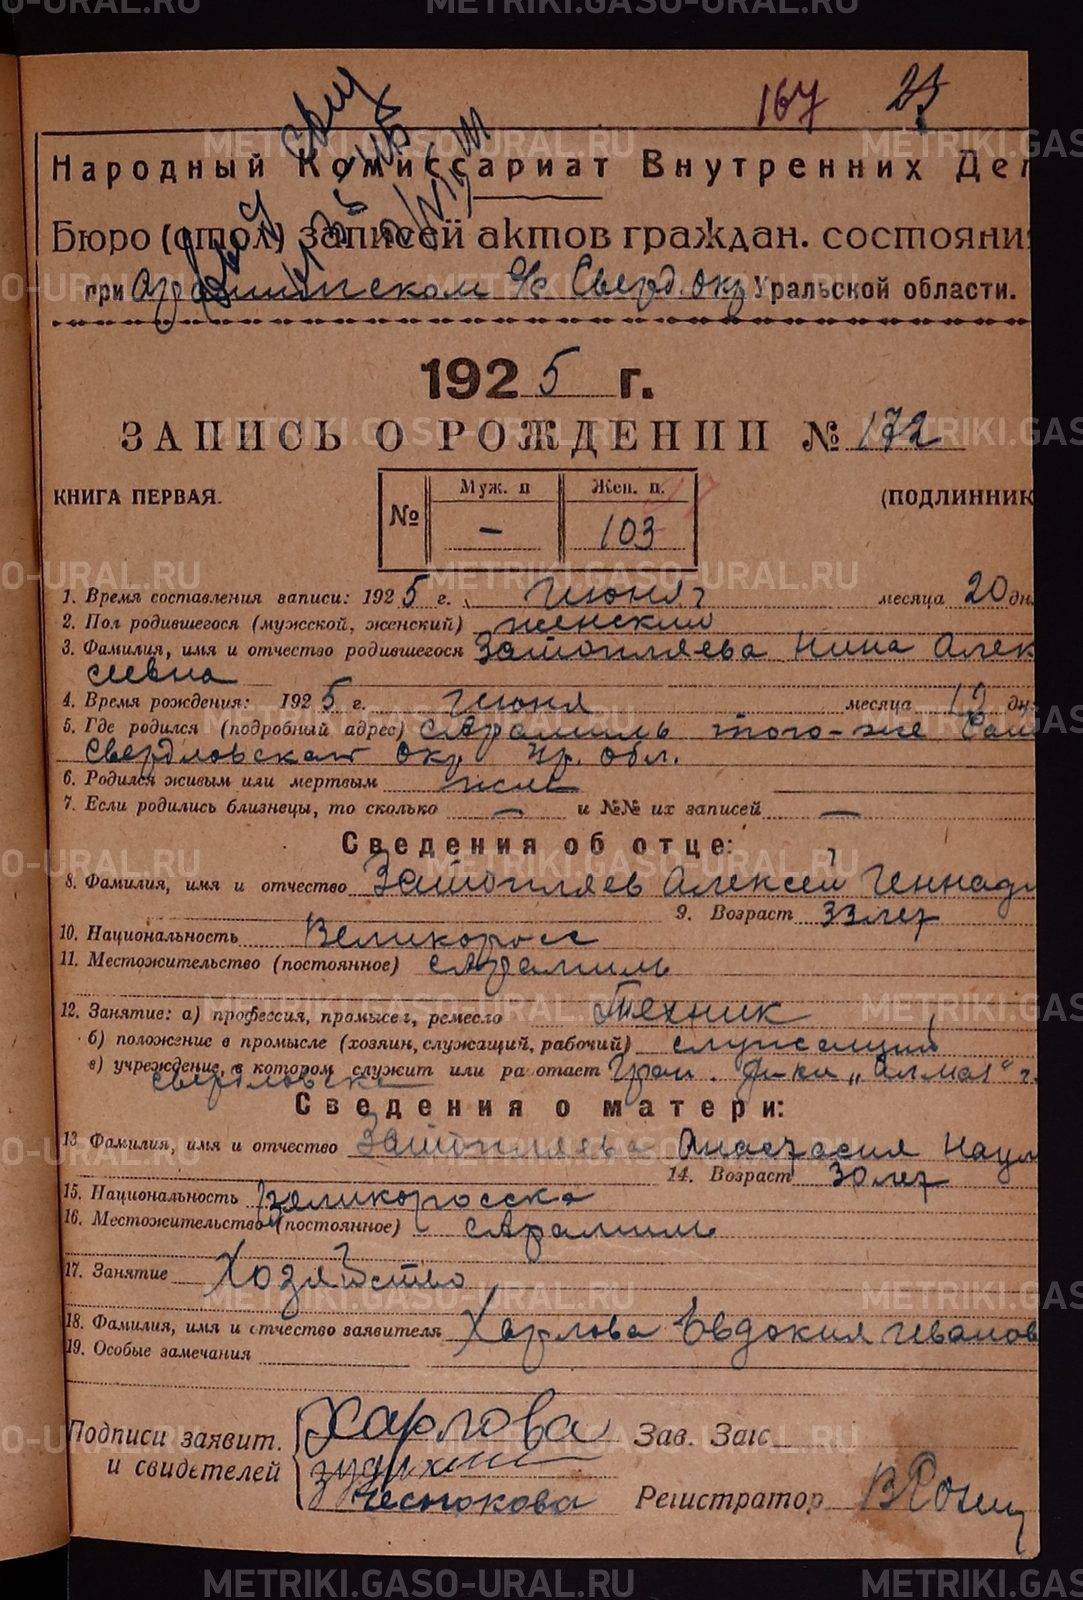 167 25
Народный Комиссариат Внутренних Дел
Бюро (стол) записей актов граждан. состояни
при Арамильском с/с Сверд. окр Уральской области.
1925 г.
ЗАПИСЬ О РОЖДЕНИИ № 172
Муж. п Жен. п.
КНИГА ПЕРВАЯ. (ПОДЛИННИК
№ — 103
1. Время составления записи: 1925 г. Июня месяца 20 дн.
2. Пол родившегося (мужской, женский) женский
3. Фамилия, имя и отчество родившегося Затопляева Нина Алек
сеевна
4. Время рождения: 1925 г. Июня месяца 12 дн.
5. Где родился (подробный адрес) с Арамиль того-же
Свердловская окр Ур. обл.
6. Родился живым или мертвым
7. Если родились близнецы, то сколько — и №№ их записей —
Сведения об отце:
8. Фамилия, имя и отчество Затопляев Алексей Геннад
9. Возраст 33 лет
10. Национальность Великоросс
11. Местожительство (постоянное) с Арамиль
12. Занятие: а) профессия, промысел, ремесло Техник
б) положение в промысле (хозяин, служащий, рабочий) служащий
в) учреждение, в котором служит или работает Гран. ф-ки „Алмаз“ г.
Свердловска
Сведения о матери:
13. Фамилия, имя и отчество Затопляева Анастасия Наум
14. Возраст 30 лет
15. Национальность Великоросска
16. Местожительство (постоянное) с Арамиль
17. Занятие Хозяйство
18. Фамилия, имя и отчество заявителя Харлова Евдокия Иванов
19. Особые замечания
Подписи заявит. Харлова Зав. Загс
и свидетелей
Чеснокова Регистратор
METRIKI.GASO-URAL.RU